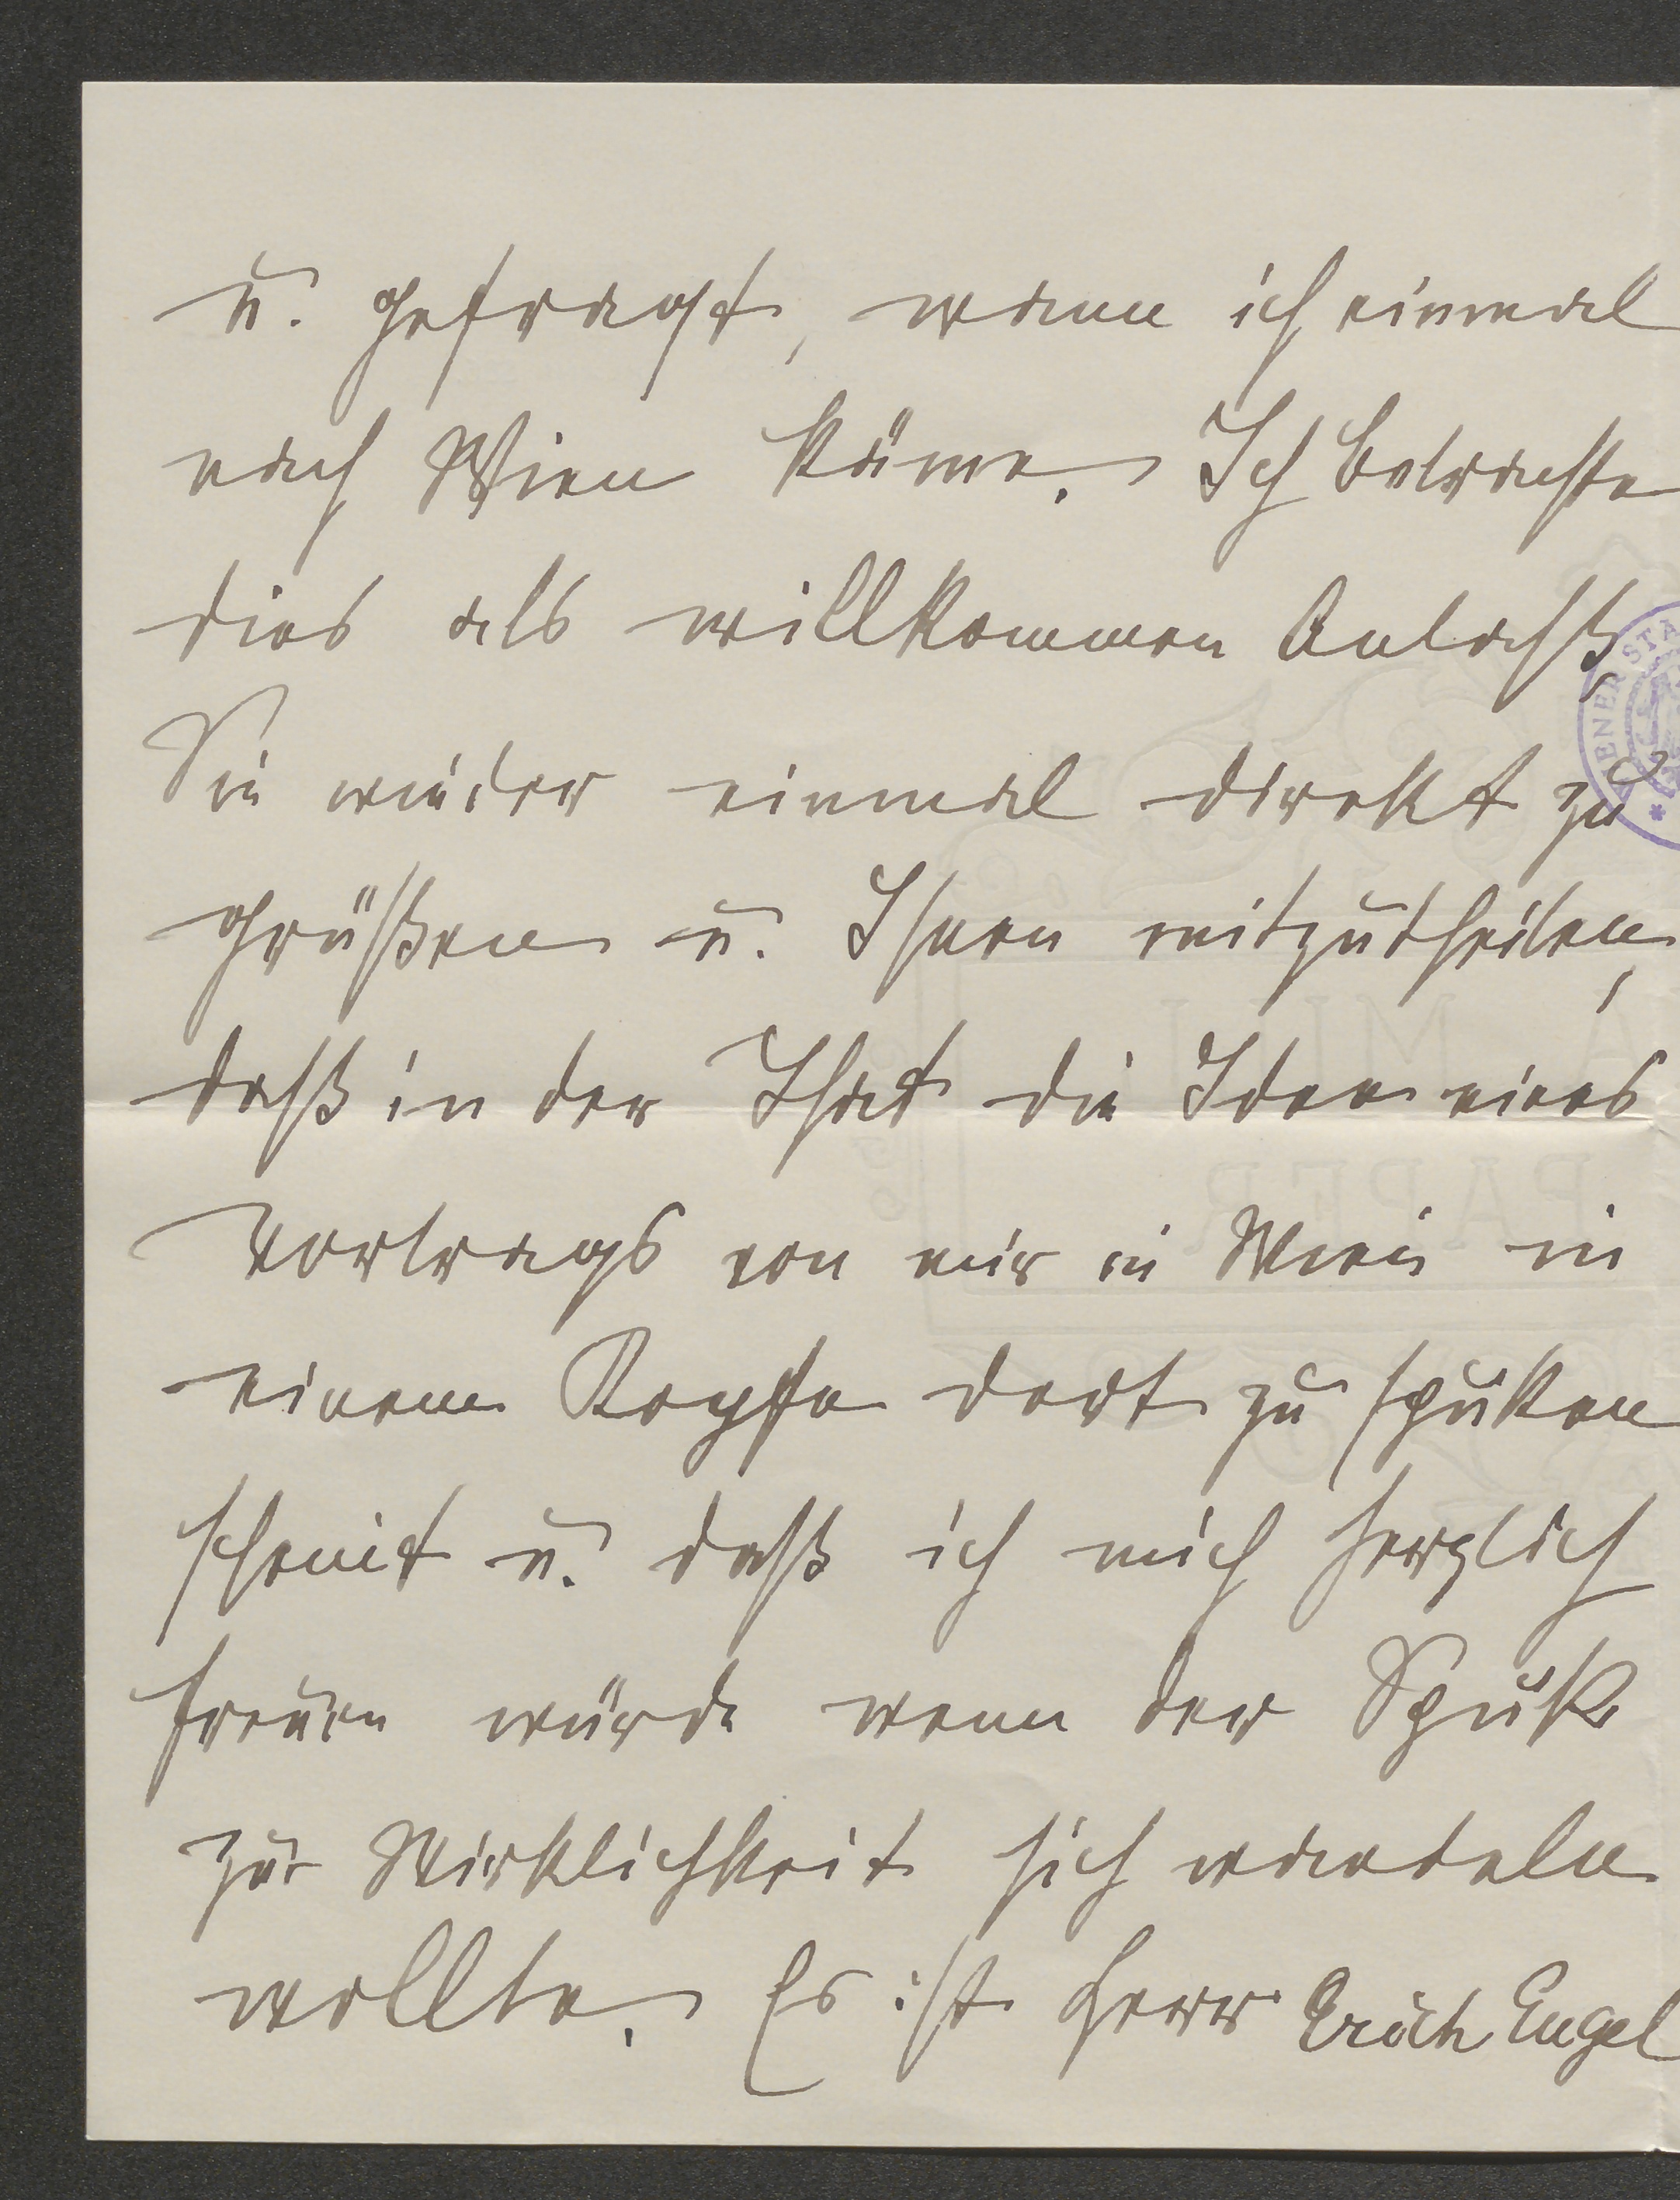 u. gefragt, wann ich einmal
nach Wien käme. Ich betrachte
dies als willkommen Anlaß,
Sie wieder einmal direkt zu
grüßen u. Ihnen mitzutheilen,
daß in der That die Idee eines
Vortrags von mir in Wien in
einem Kopfe dort zu spuken
scheint u. daß ich mich herzlich
freuen würde wenn der Spuk
zur Wirklichkeit sich wandeln
wollte. Es ist Herr Erich Engel
IENER STA
A MILL
PAPER